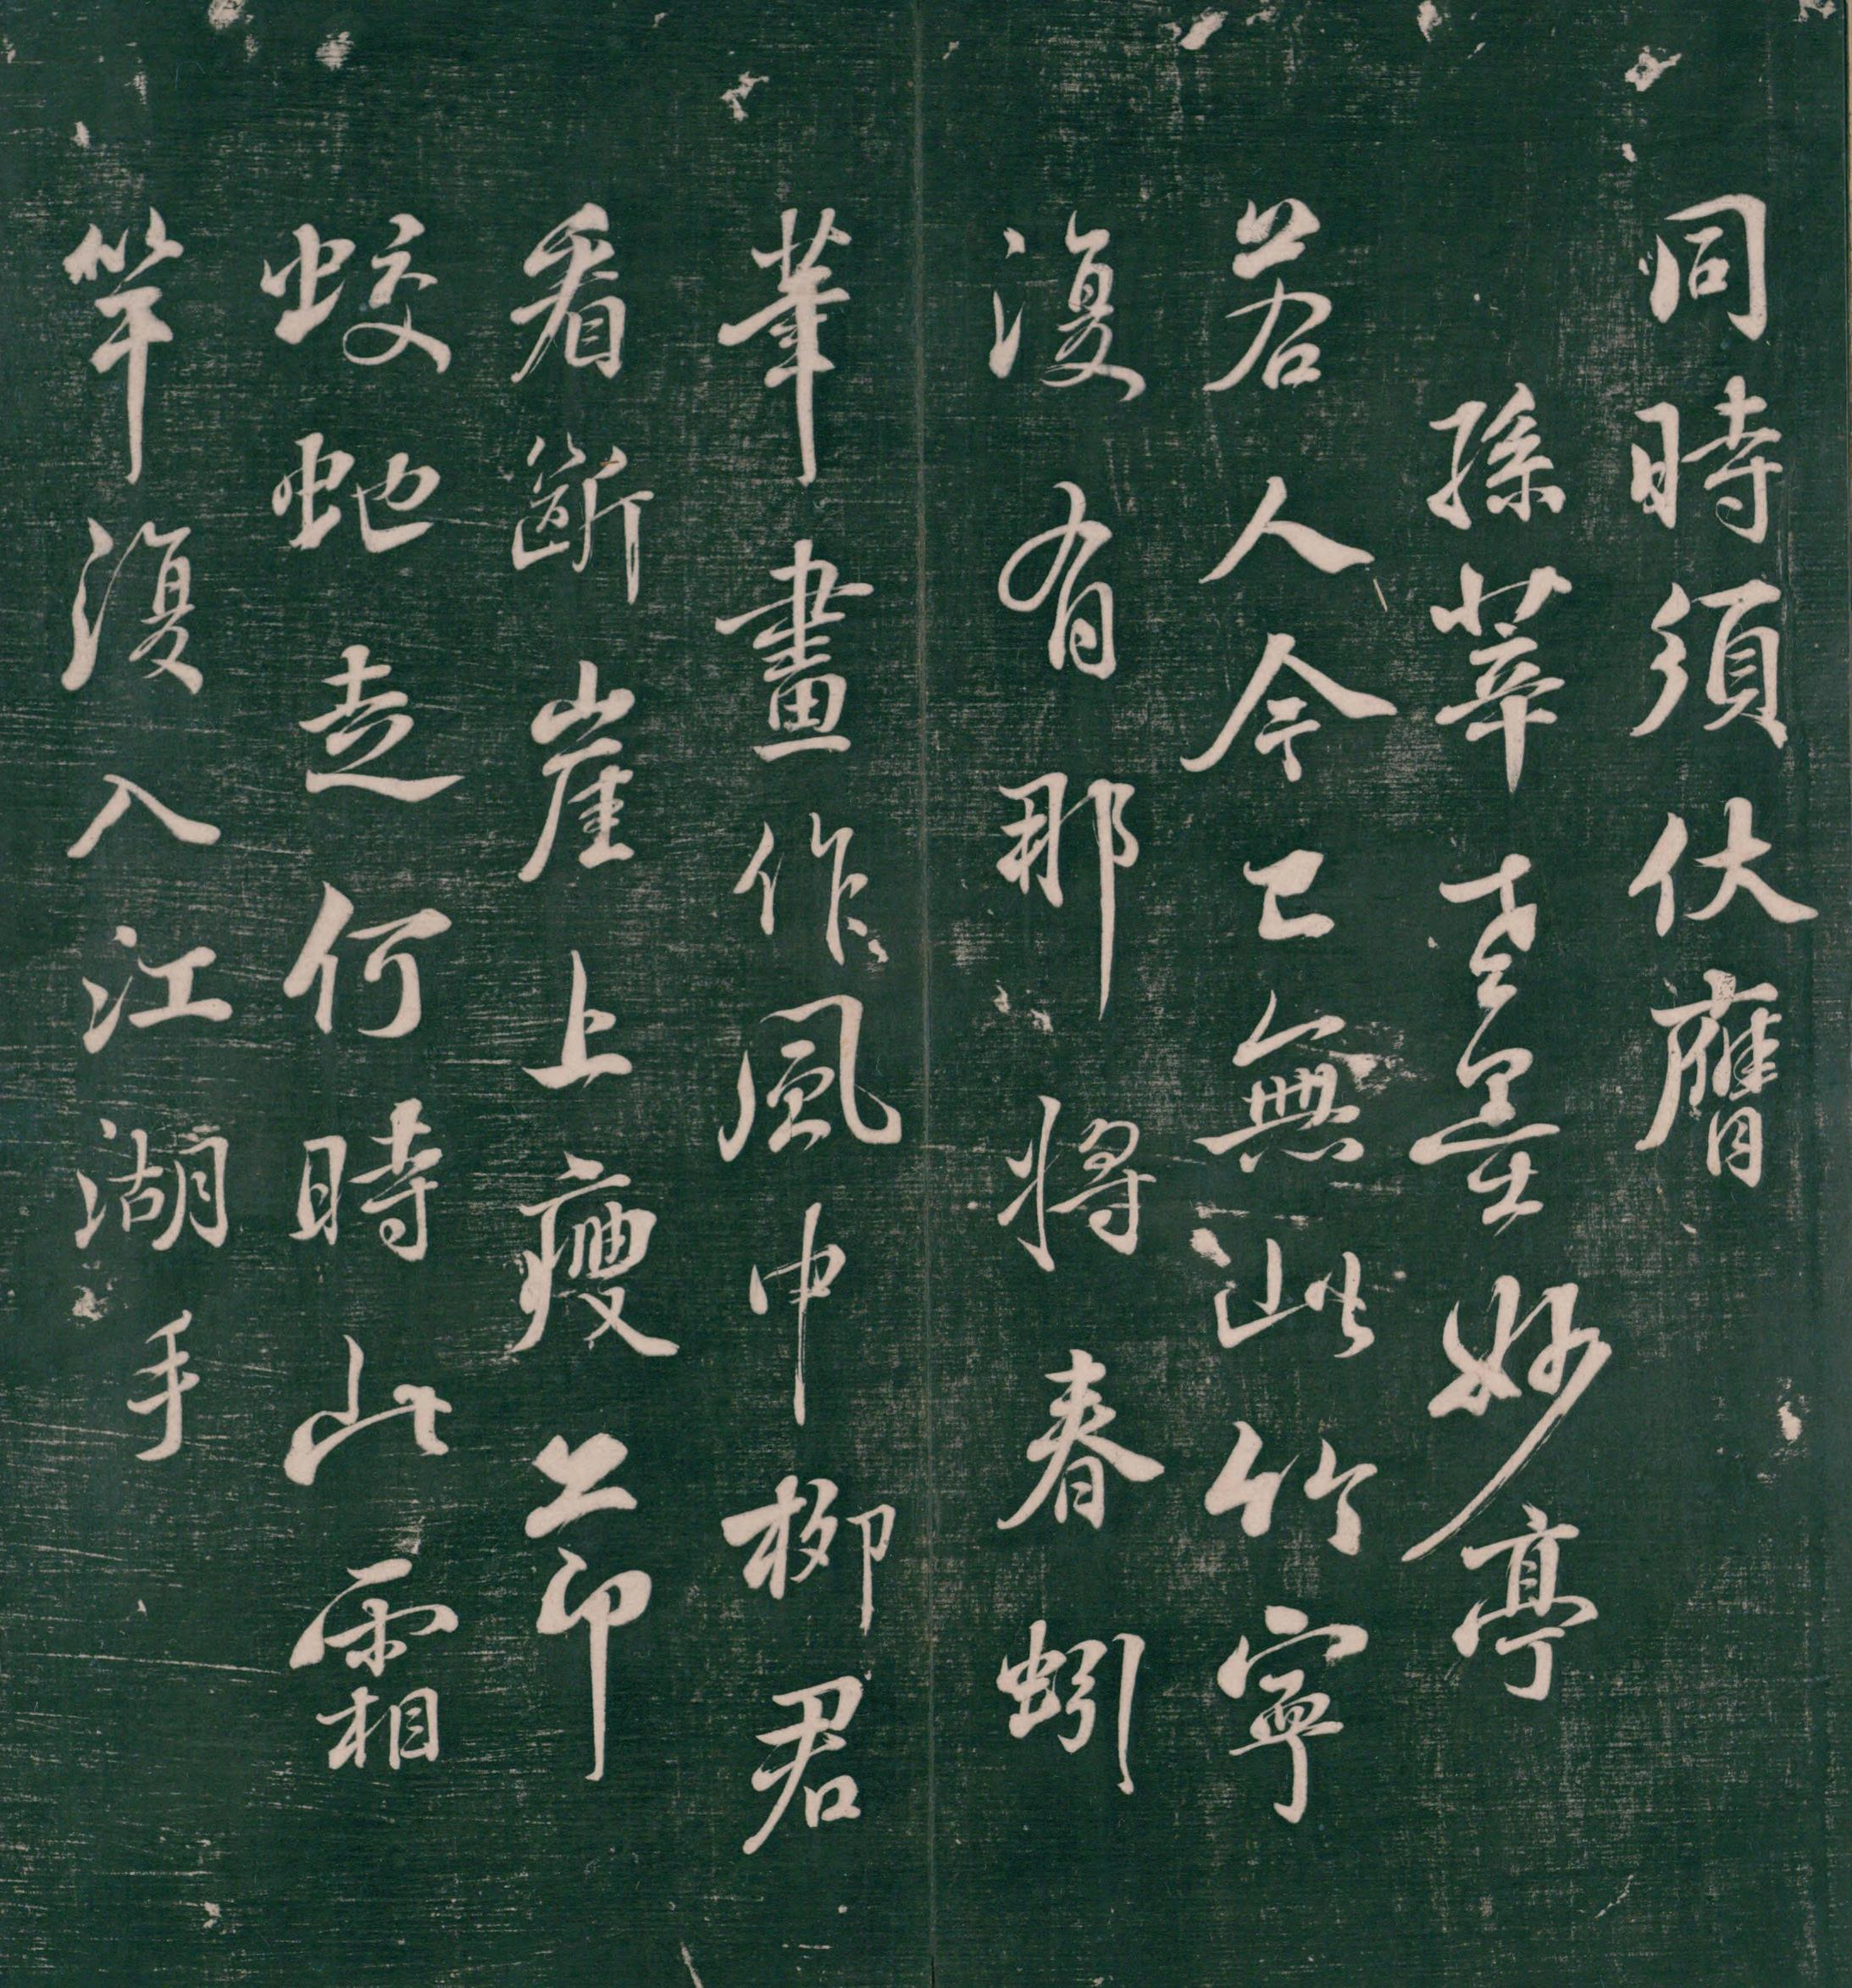 同時須伏膺
孫莘老墨妙亭
若人今已無此竹寧
復有那將春蚓
筆畫作風中柳君
看斷崖上瘦節
蛟虵走何時此霜
竿復入江湖手